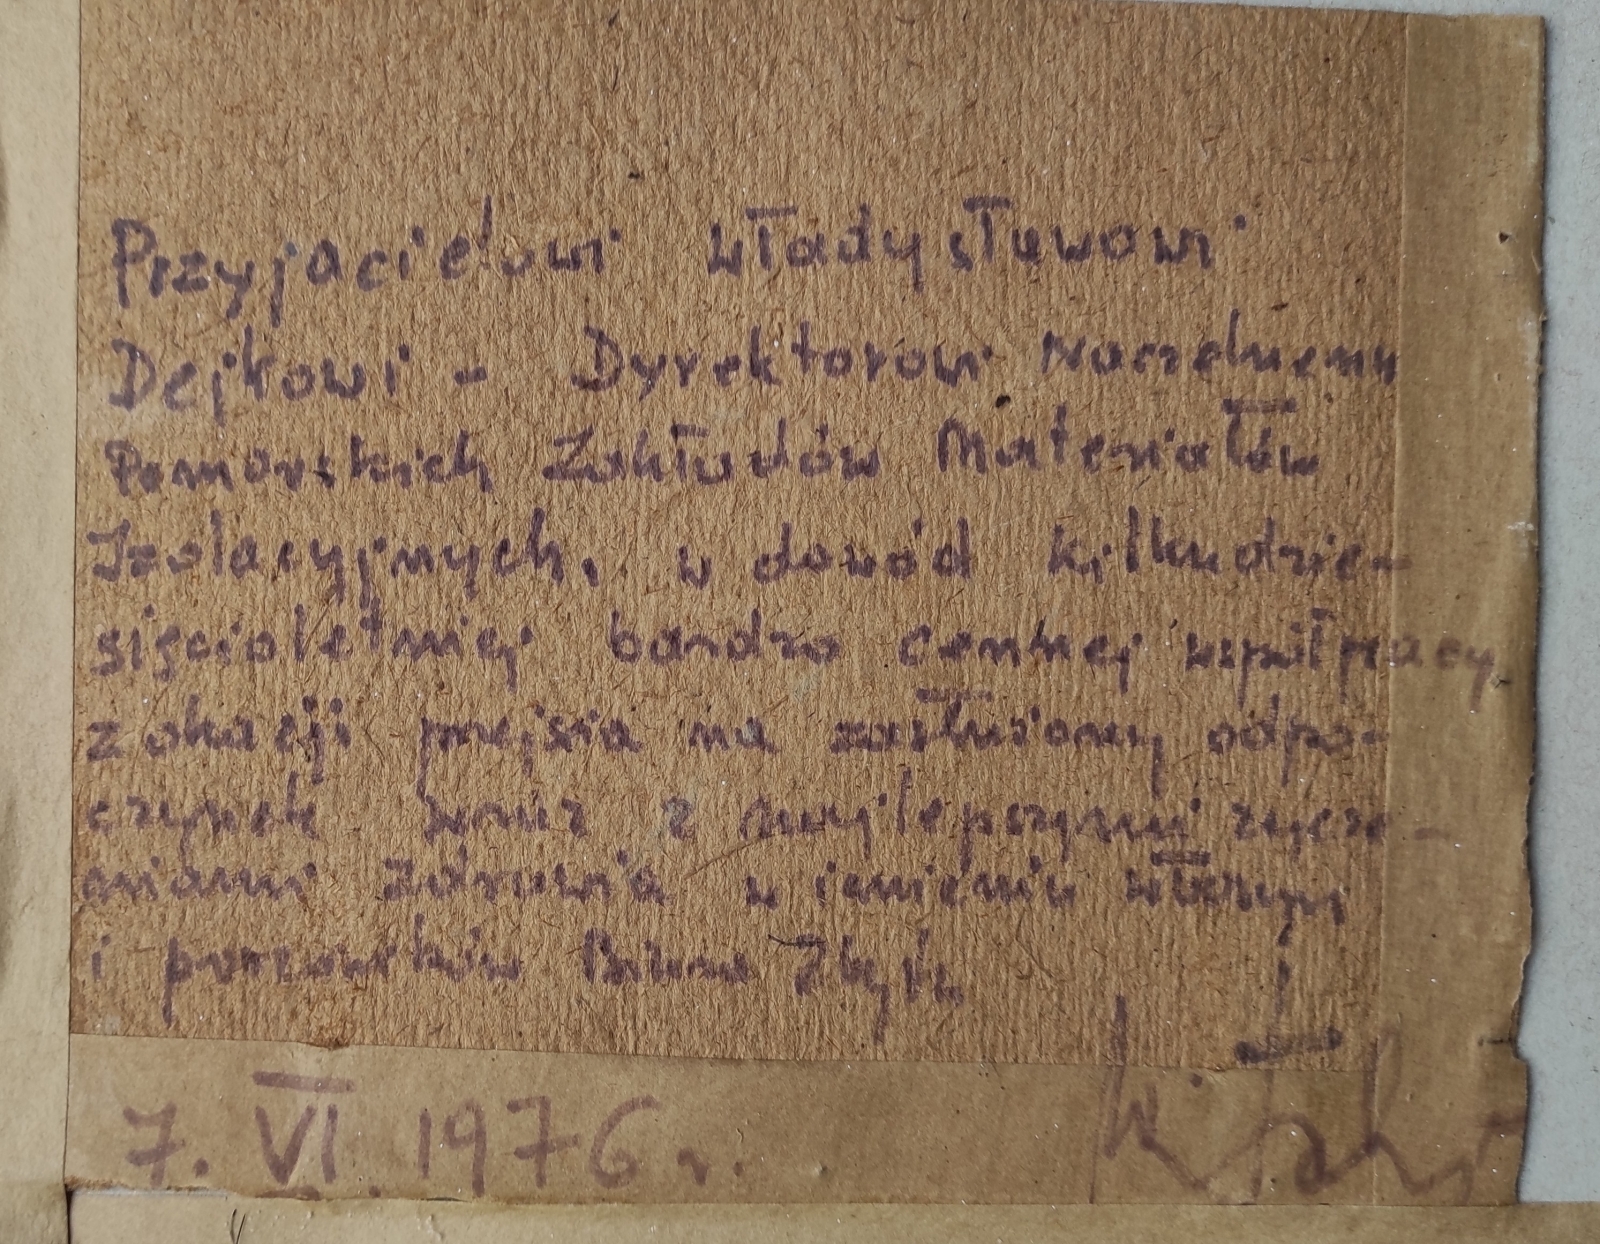 Przyjacielowi Władysławowi
Dejkowi - Dyrektorowi Naczelnemu
Pomorskich Zakładów Materiałów
Izolacyjnych, w dowód kilkudzie-
sięcioletniej bardzo cennej współpracy,
z okazji przejścia na zasłużony odpo-
czynek wraz z najlepszymi życze-
niami zdrowia w imieniu własnym
i pracowników Biura Zbytu
7. VI. 1976 r.